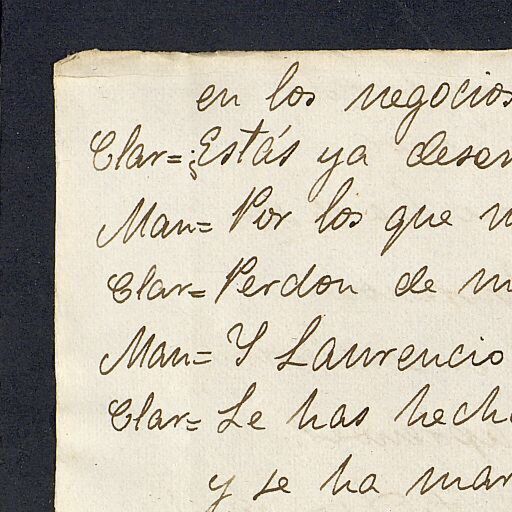 en los negocios
Clar= ¿Estás ya
Man= Por los que
Clar= Perdon de
Man= Y Laurencio
Clar= Le has
y se ha